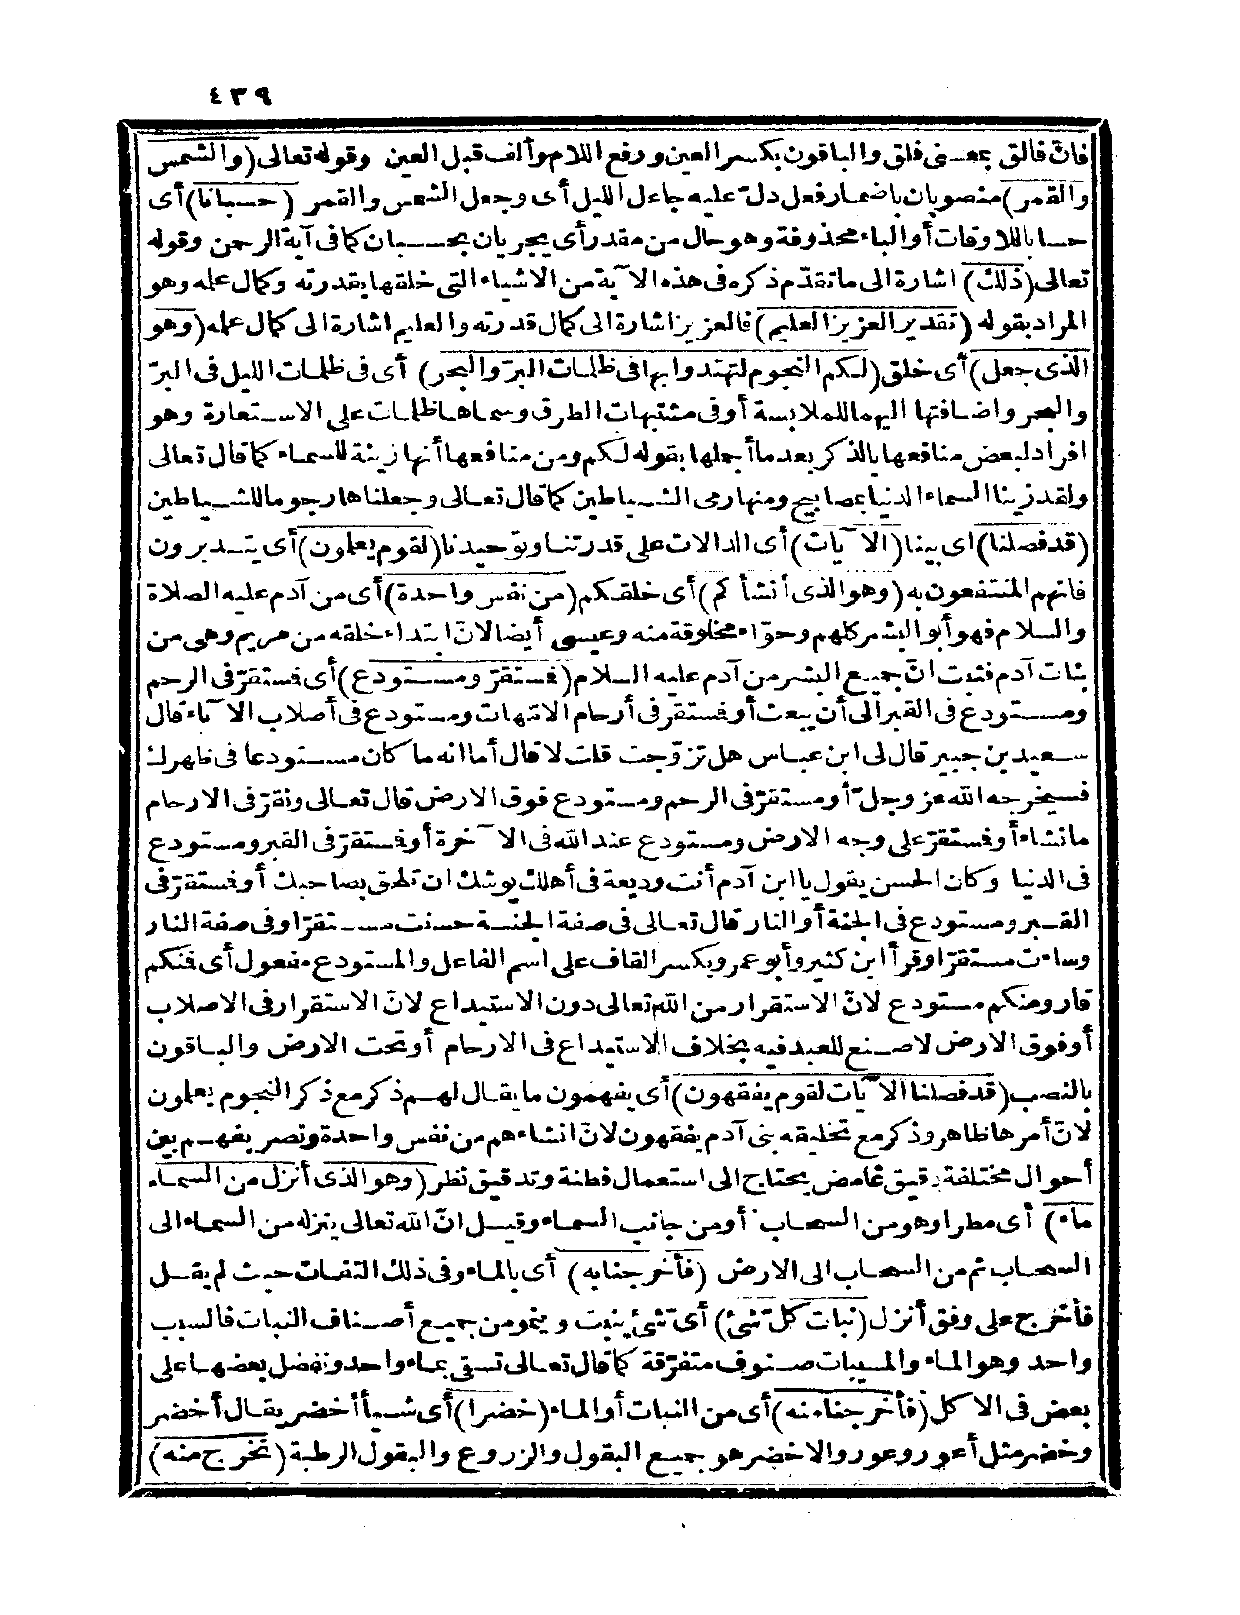 ٤٣٩
فانّ فالق بمعنى فلق والباقون بكسر العين ورفع اللام وألف قبل العين وقوله تعالى (والشمس
والقمر) منصوبان باضمار فعل دلّ عليه جاعل الليل أى وجعل الشمس والقمر (حسبانا) أى
حسابا للاوقات أو الباء محذوفة وهو حال من مقدر أى يجريان بحسبان كما فى آية الرحمن وقوله
تعالى (ذلك) اشارة الى ما تقدّم ذكره فى هذه الآية من الاشياء التى خلقها بقدرته وكمال علمه وهو
المراد بقوله (تقدير العزيز العليم) فالعزيز اشارة الى كمال قدرته والعليم اشارة الى كمال علمه (وهو
الذى جعل) أى خلق (لكم النجوم لتهتدوا بها فى ظلمات البرّ والبحر) أى فى ظلمات الليل فى البرّ
والبحر واضافتها اليهما للملابسة أو فى مشتبهات الطرق وسماها ظلمات على الاستعارة وهو
افراد لبعض منافعها بالذكر بعد ما أجملها بقوله لكم ومن منافعها أنها زينة للسماء كما قال تعالى
ولقد زينا السماء الدنيا بمصابيح ومنها رمى الشياطين كما قال تعالى وجعلناها رجوما للشياطين
(قد فصلنا) اى بينا (الآيات) أى الدالات على قدرتنا وتوحيدنا (لقوم يعلمون) أى يتدبرون
فانهم المنتفعون به (وهو الذى أنشأكم) أى خلقكم (من نفس واحدة) أى من آدم عليه الصلاة
والسلام فهو أبو البشر كلهم وحوّاء مخلوقة منه وعيسى أيضا لانّ ابتداء خلقه من مريم وهى من
بنات آدم فثبت انّ جميع البشر من آدم عليه السلام (فستقرّ ومستودع) أى فستقرّ فى الرحم
ومستودع فى القبر الى أن يبعث أو فستقر فى أرحام الامّهات ومستودع فى أصلاب الآباء قال
سعيد بن جبير قال لى ابن عباس هل تزوّجت قلت لا قال أما انه ما كان مستودعا فى ظهرك
فسيخرجه الله عز وجلّ أو مستقرّ فى الرحم ومستودع فوق الارض قال تعالى ونقرّ فى الارحام
ما نشاء أو فستقرّ على وجه الارض ومستودع عند الله فى الآخرة أو فستقرّ فى القبر ومستودع
فى الدنيا وكان الحسن يقول يا ابن آدم أنت وديعة فى أهلك يوشك ان تلحق بصاحبك أو فستقرّ فى
القبر ومستودع فى الجنة أو النار قال تعالى فى صفة الجنة حسنت مستقرّا وفى صفة النار
وساءت مستقرّا وقرأ ابن كثير وأبو عمرو بكسر القاف على اسم الفاعل والمستودع مفعول أى فنكم
قار ومنكم مستودع لانّ الاستقرار من الله تعالى دون الاستيداع لانّ الاستقرار فى الاصلاب
أو فوق الارض لا صنع للعبد فيه بخلاف الاستيداع فى الارحام أو تحت الارض والباقون
بالنصب (قد فصلنا الآيات لقوم يفقهون) أى يفهمون ما يقال لهم ذكر مع ذكر النجوم يعلمون
لانّ أمرها ظاهر وذكر مع تخليقه بنى آدم يفقهون لانّ انشاءهم من نفس واحدة وتصريفهم بين
أحوال مختلفة دقيق غامض يحتاج الى استعمال فطنة وتدقيق نظر (وهو الذى أنزل من السماء
ماء) أى مطرا وهو من السحاب أو من جانب السماء وقيل انّ الله تعالى ينزله من السماء الى
السحاب ثم من السحاب الى الارض (فأخرجنا به) أى بالماء وفى ذلك التفات حيث لم يقل
فأخرج على وفق أنزل (نبات كل شئ) أى شئ ينبت وينمو من جميع أصناف النبات فالسبب
واحد وهو الماء والمسببات صنوف متفرّقة كما قال تعالى تسقى بماء واحد ونفضل بعضها على
بعض فى الاكل (فأخرجنا منه) أى من النبات أو الماء (خضرا) أى شيأ أخضر يقال أخضر
وخضر مثل أعور وعور والاخضر هو جميع البقول والزروع والبقول الرطبة (نخرج منه)